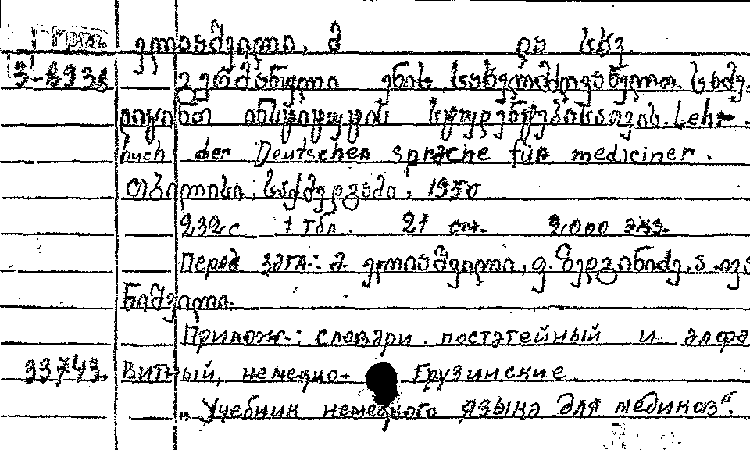 ელიაშვილი, მ და სხვ.
გერმანული ენის სახელმძღვანელო სამე-
დიცინო ინსტიტუტის სტუდენტებისათვის. Lehr-
buch der Deutschen sprache für mediciner.
თბილისი, საქმედგამი, 1950
232 с 1 табл. 21 см. 2.000 экз.
Перед загл.: მ. ელიაშვილი,
Прилож.: словари постатейный и алфа
33743. Витный, немецко- Грузинские
„Учебник немецкого языка для медиков“.